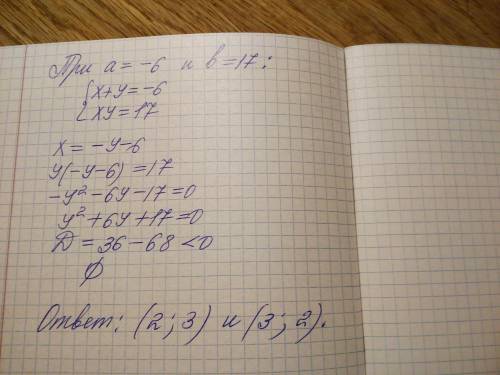 При a = -6 и b = 17:
{x+y = -6
{xy = 17
x = -y-6
y(-y-6) = 17
-y²-6y-17=0
y²+6y+17=0
D = 36-68<0
∅
Ответ: (2; 3) и (3; 2).